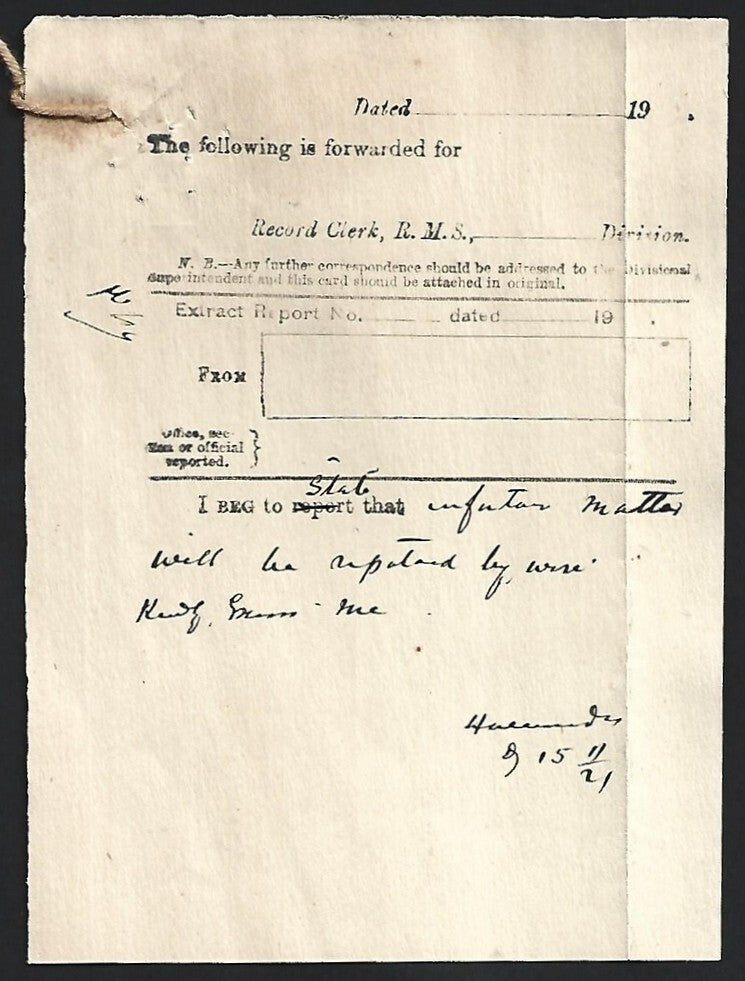 Dated 19 .
The following is forwarded for
Record Clerk, R. M. S., Division.
N. B.—Any further correspondence should be addressed to the Divisional
Superintendent and this card should be attached in original.
Extract Report No. dated 19 .
FROM
Office, sec-
tion or official
reported.
State
I BEG to report that in future matter
will be reported by wire
Kindly Excuse me.
15 11/21